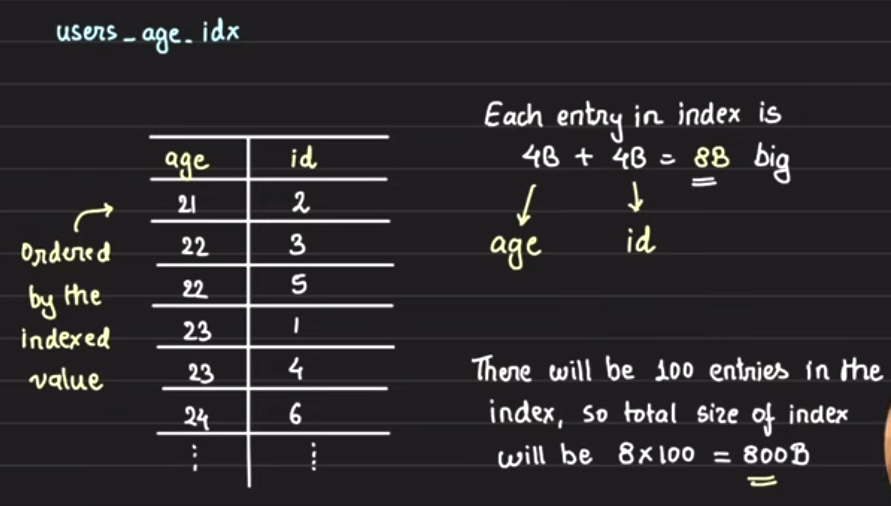 users_age_idx
age id
21 2
22 3
22 5
23 1
23 4
24 6
⋮ ⋮
Ordered
by the
indexed
value
Each entry in index is
4B + 4B = 8B big
age id
There will be 100 entries in the
index, so total size of index
will be 8x100 = 800B